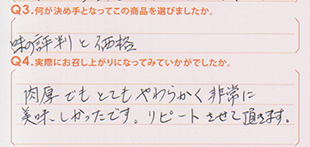 Q3.何が決め手となってこの商品を選びましたか。
味の評判と価格
Q4.実際にお召し上がりになってみていかがでしたか。
肉厚でもとてもやわらかく非常に
美味しかったです。リピートさせて頂きます。